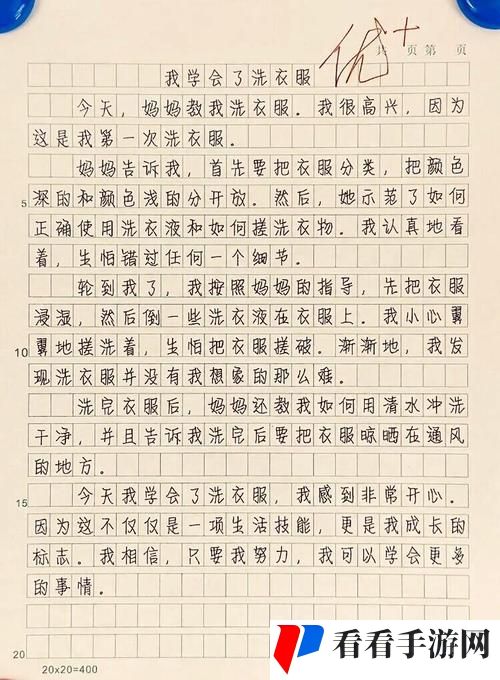 优+
共 页 第 页
我学会了洗衣服
今天，妈妈教我洗衣服。我很高兴，因为
这是我第一次洗衣服。
妈妈告诉我，首先要把衣服分类，把颜色
深的和颜色浅的分开放。然后，她示范了如何
5
正确使用洗衣液和如何搓洗衣物。我认真地看
着，生怕错过任何一个细节。
轮到我了，我按照妈妈的指导，先把衣服
浸湿，然后倒一些洗衣液在衣服上。我小心翼
10
翼地搓洗着，生怕把衣服搓破。渐渐地，我发
现洗衣服并没有我想象的那么难。
洗完衣服后，妈妈还教我如何用清水冲洗
干净，并且告诉我洗完后要把衣服晾晒在通风
的地方。
15
今天我学会了洗衣服，我感到非常开心。
因为这不仅仅是一项生活技能，更是我成长的
标志。我相信，只要我努力，我可以学会更多
的事情。
20
20x20=400
看看手游网
www.kkssyx.com